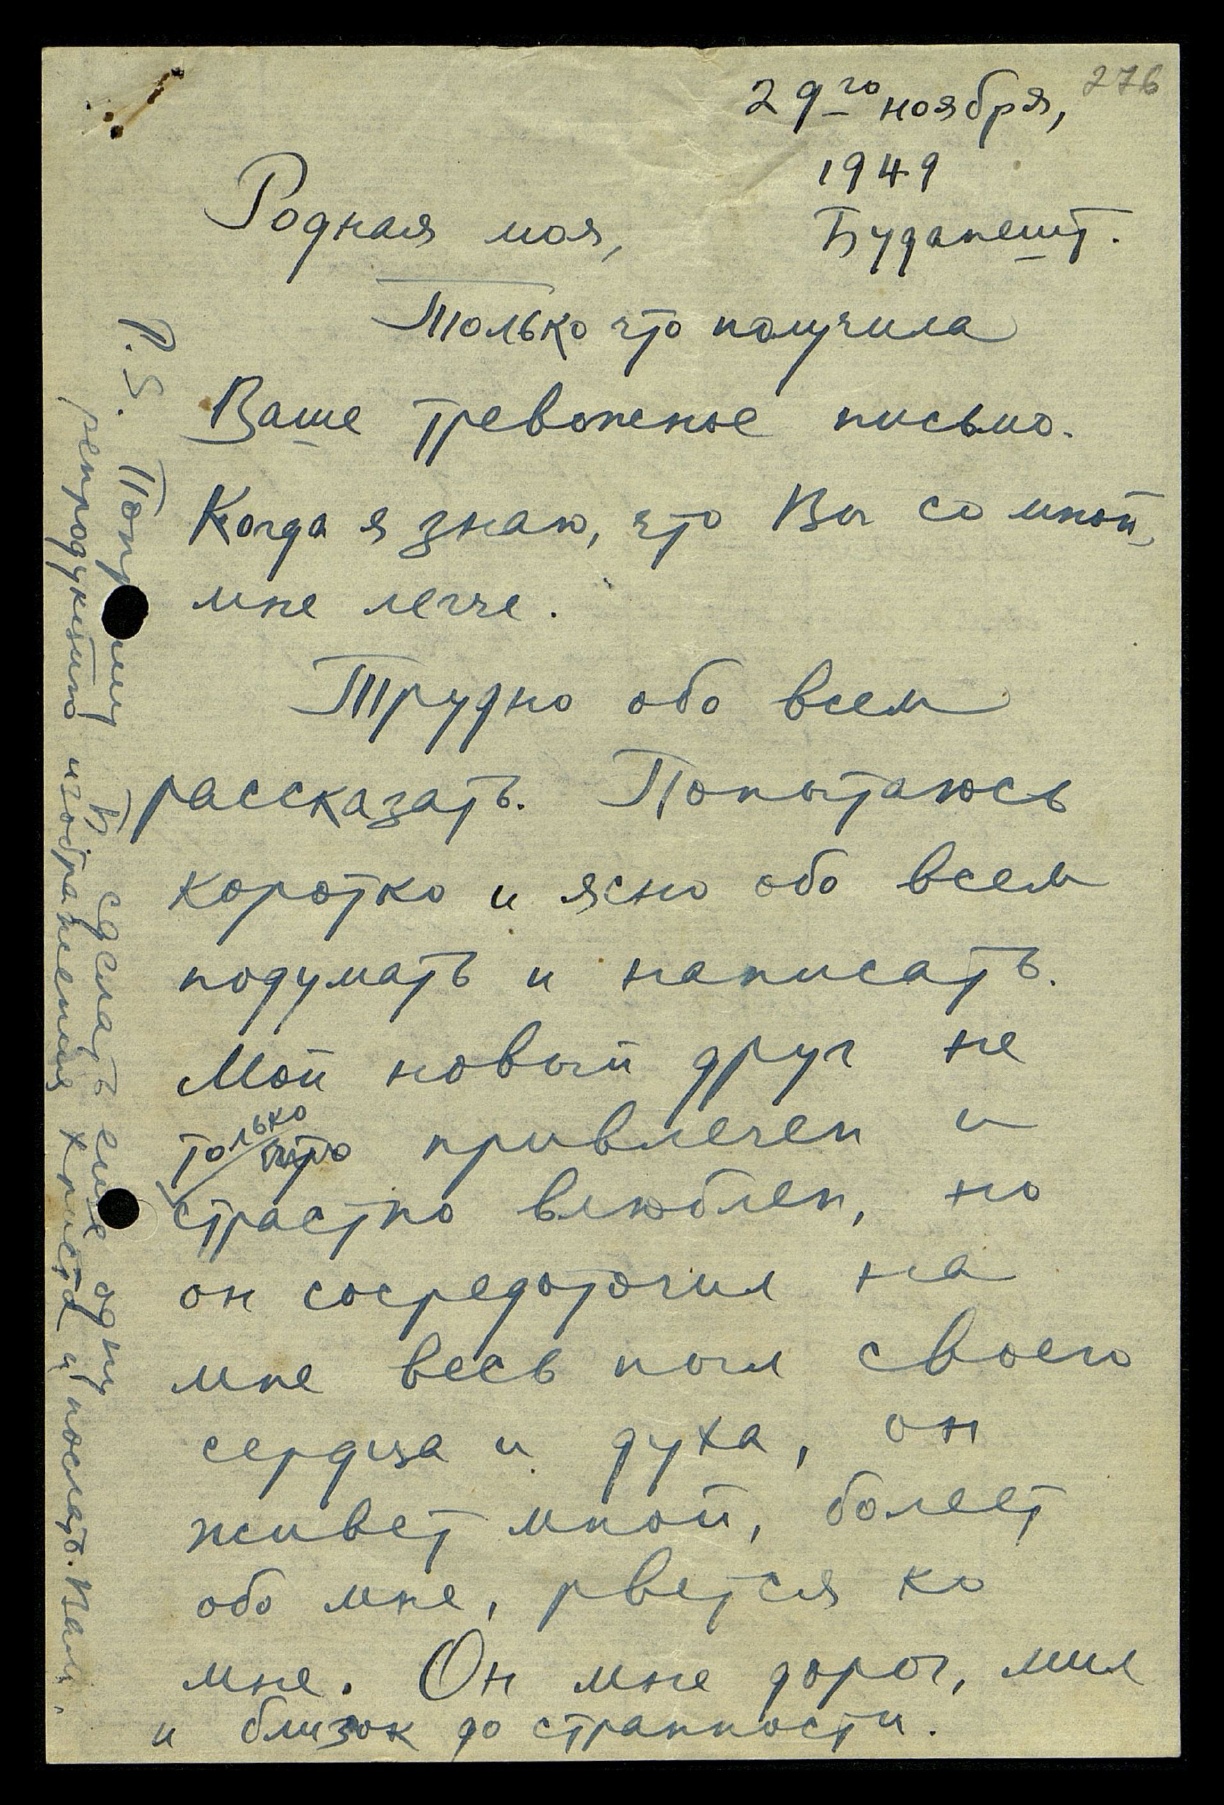 276
29го ноября,
1949
Будапешт.
Родная моя,
Только что получила
Ваше тревожное письмо.
Когда я знаю, что Вы со мной,
мне легче.
Трудно обо всем
рассказать. Попытаюсь
коротко и ясно обо всем
подумать и написать.
Мой новый друг не
только привлечен и
страстно влюблен, но
он сосредоточил на
мне весь пыл своего
сердца и духа, он
живет мной, болеет
обо мне, рвется ко
мне. Он мне дорог, мил
и близок до странности.
P.S. Попрошу В. сделать еще одну
репродукцию изображения Христа и послать Вам.